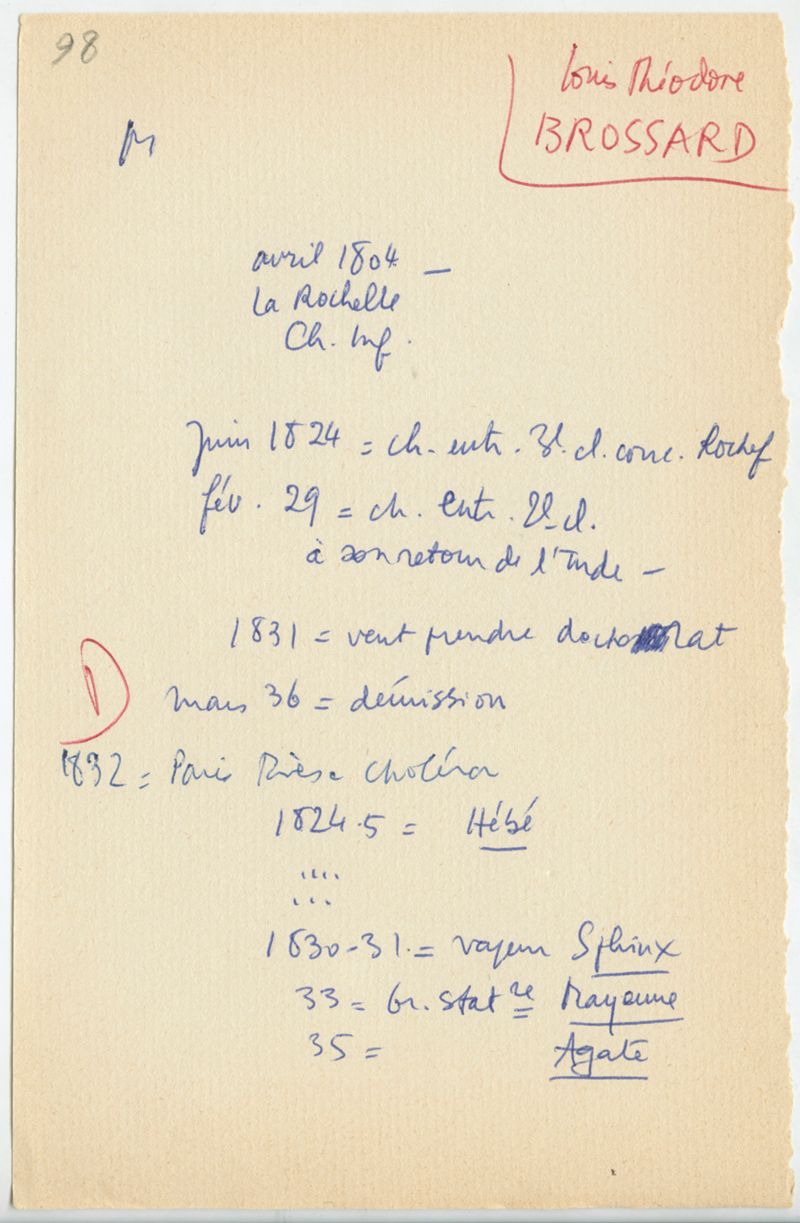 98
Louis Théodore
BROSSARD
M
avril 1804 —
La Rochelle
Ch. Inf.
Juin 1824 = ch. entr. 3e. cl. conc. Rochef
fév. 29 = ch. entr. 2e cl.
à son retour de l'Inde —
1831 = veut prendre doctorat
D
mars 36 = démission
1832 = Paris Thèse choléra
1824.5 = Hébé
....
...
1830-31. = vapeur Sphinx
33 = stat re Mayenne
35 = Agate